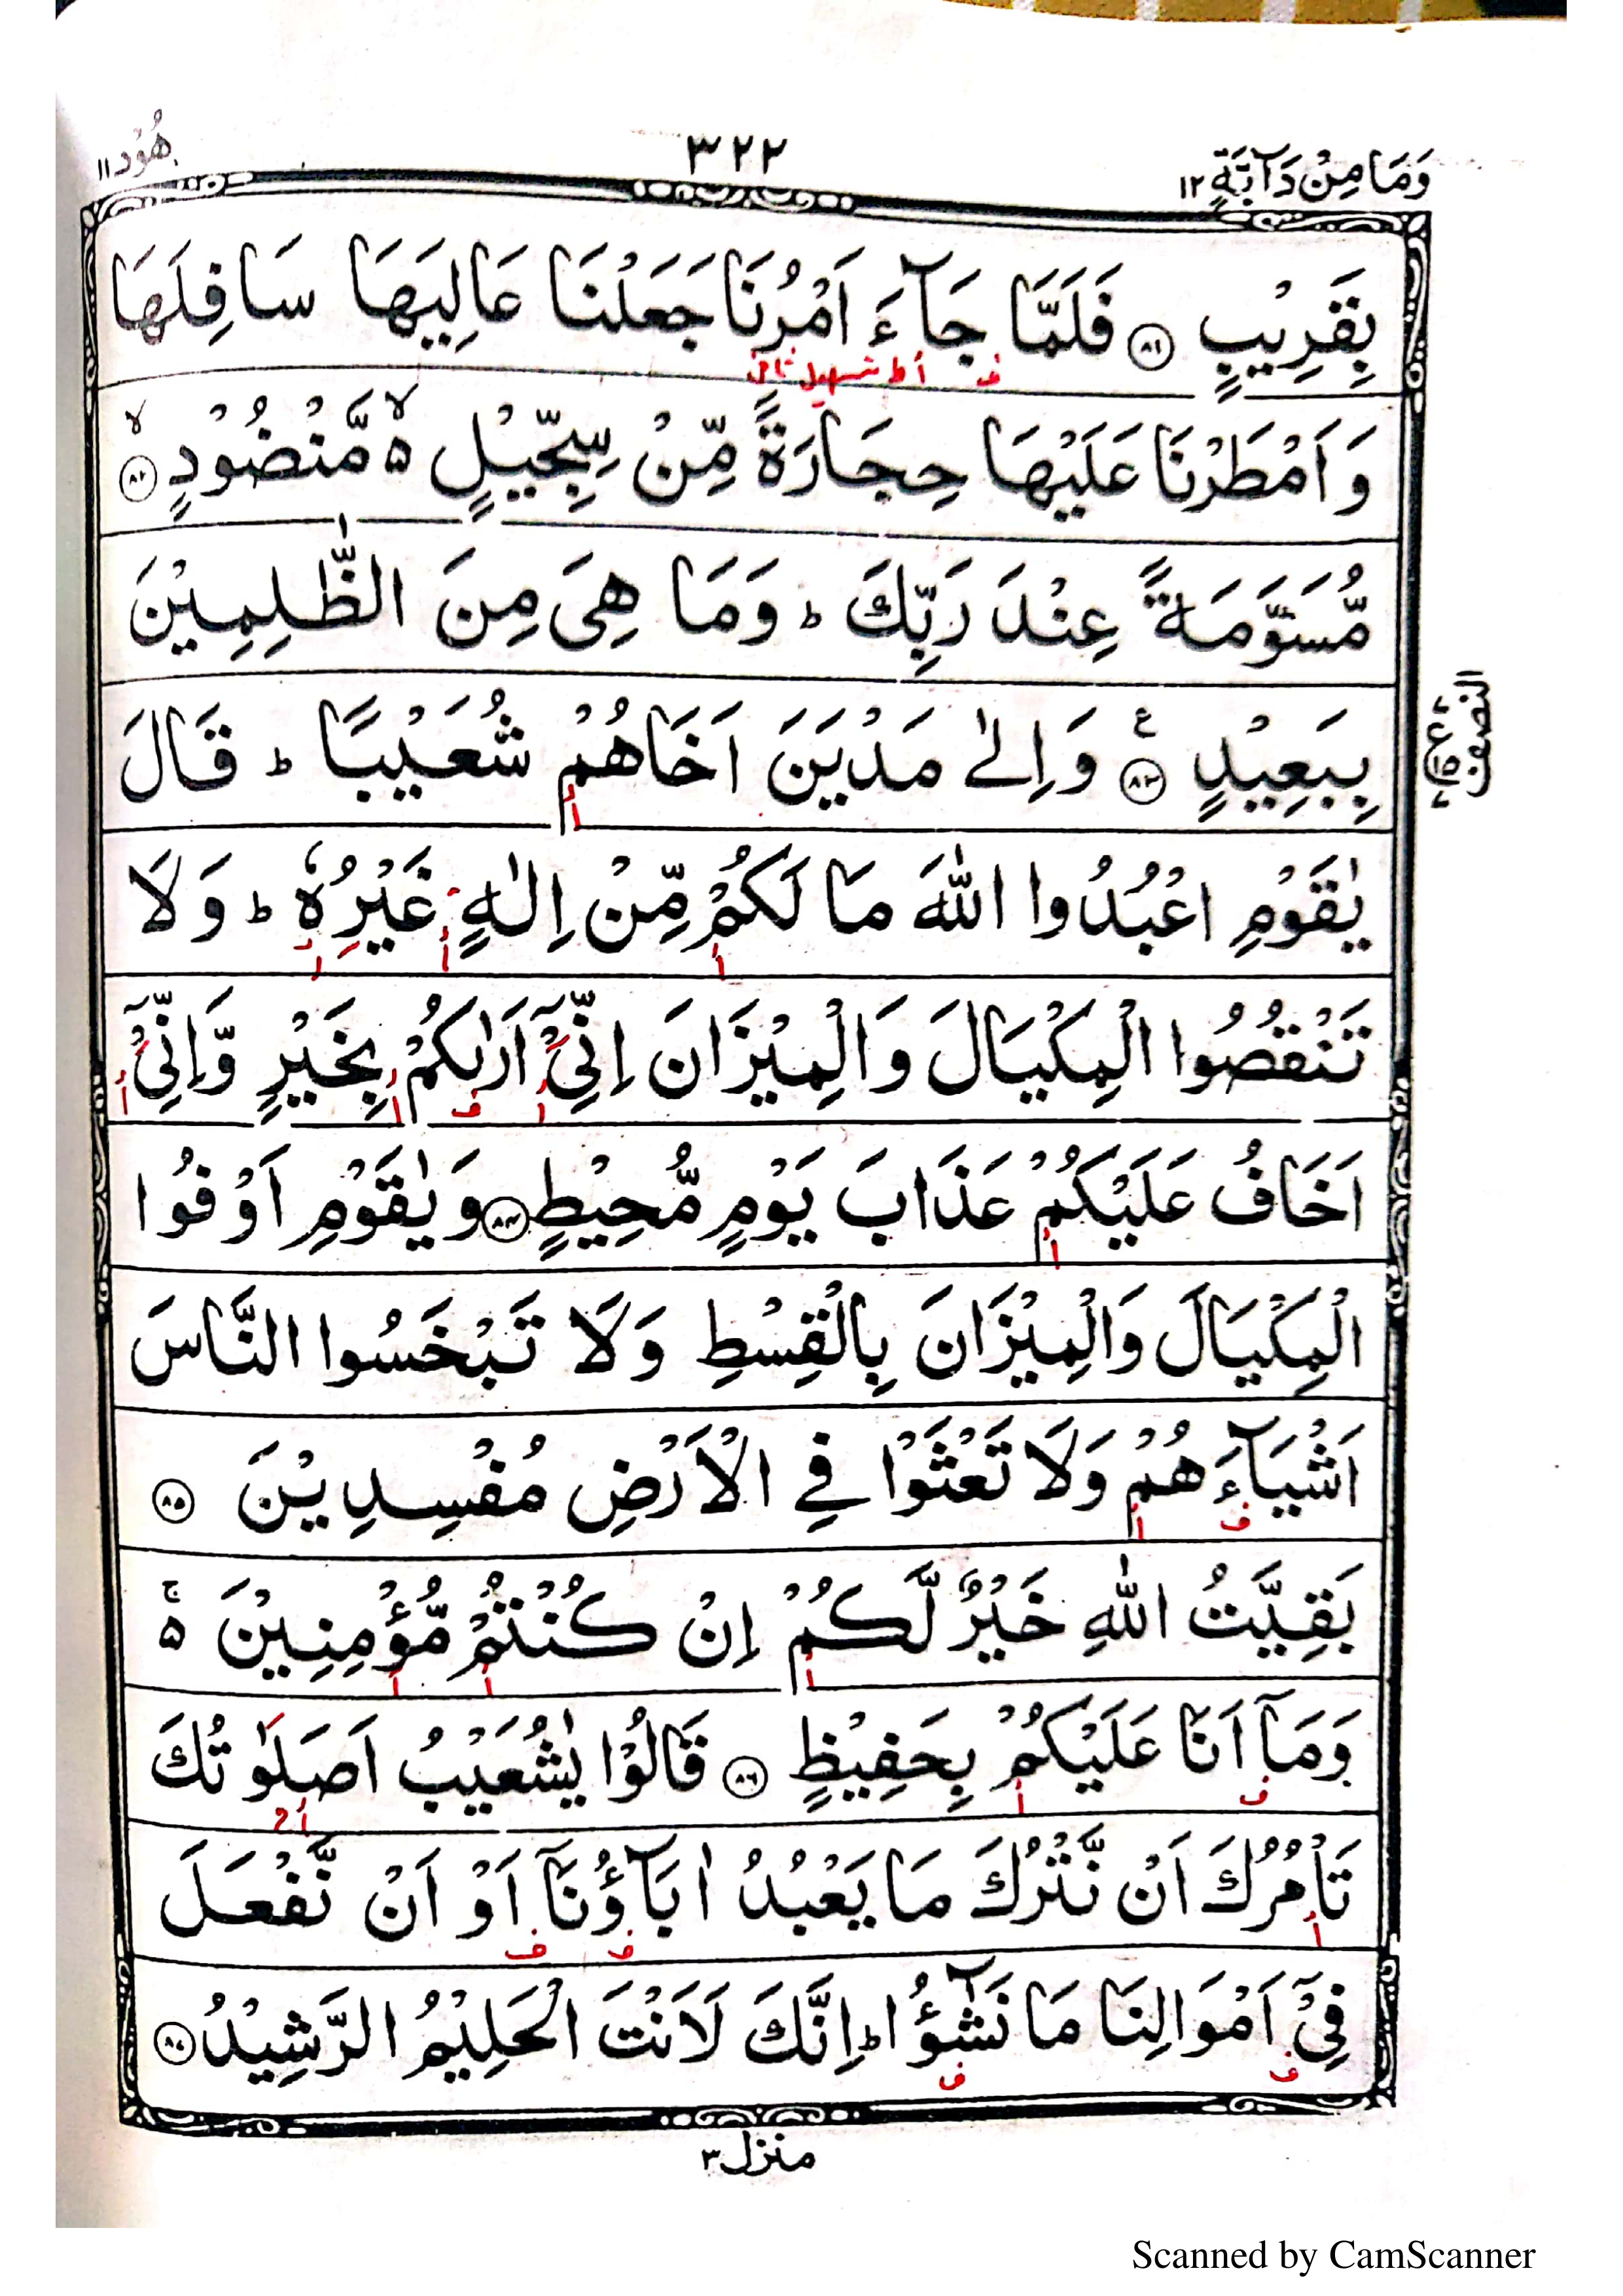 وَمَا مِنْ دَآبَّةٍ ١٢
٣٢٢
هُوْد ١١
بِقَرِيْبٍ ﴿٨١﴾ فَلَمَّا جَآءَ اَمْرُنَا جَعَلْنَا عَالِيَهَا سَافِلَهَا
ف أط تسهيل ثاني
وَاَمْطَرْنَا عَلَيْهَا حِجَارَةً مِّنْ سِجِّيْلٍ ۵ۙ مَّنْضُوْدٍ ﴿٨٢﴾ۙ
مُّسَوَّمَةً عِنْدَ رَبِّكَ ؕ وَمَا هِىَ مِنَ الظّٰلِمِيْنَ
بِبَعِيْدٍ ﴿٨٣﴾ ع وَاِلٰى مَدْيَنَ اَخَاهُمْ شُعَيْبًا ؕ قَالَ
النصف
يٰقَوْمِ اعْبُدُوا اللّٰهَ مَا لَكُمْ مِّنْ اِلٰهٍ غَيْرُهٗ ؕ وَلَا
تَنْقُصُوا الْمِكْيَالَ وَالْمِيْزَانَ اِنِّىْٓ اَرٰىكُمْ بِخَيْرٍ وَّاِنِّىْٓ
اَخَافُ عَلَيْكُمْ عَذَابَ يَوْمٍ مُّحِيْطٍ ﴿٨٤﴾ وَيٰقَوْمِ اَوْفُوا
الْمِكْيَالَ وَالْمِيْزَانَ بِالْقِسْطِ وَلَا تَبْخَسُوا النَّاسَ
اَشْيَآءَهُمْ وَلَا تَعْثَوْا فِى الْاَرْضِ مُفْسِدِيْنَ ﴿٨٥﴾
بَقِيَّتُ اللّٰهِ خَيْرٌ لَّكُمْ اِنْ كُنْتُمْ مُّؤْمِنِيْنَ ۵ۚ
وَمَآ اَنَا عَلَيْكُمْ بِحَفِيْظٍ ﴿٨٦﴾ قَالُوْا يٰشُعَيْبُ اَصَلٰوتُكَ
تَاْمُرُكَ اَنْ نَّتْرُكَ مَا يَعْبُدُ اٰبَآؤُنَآ اَوْ اَنْ نَّفْعَلَ
فِىْٓ اَمْوَالِنَا مَا نَشٰٓؤُا ؕ اِنَّكَ لَاَنْتَ الْحَلِيْمُ الرَّشِيْدُ ﴿٨٧﴾
منزل ٣
Scanned by CamScanner